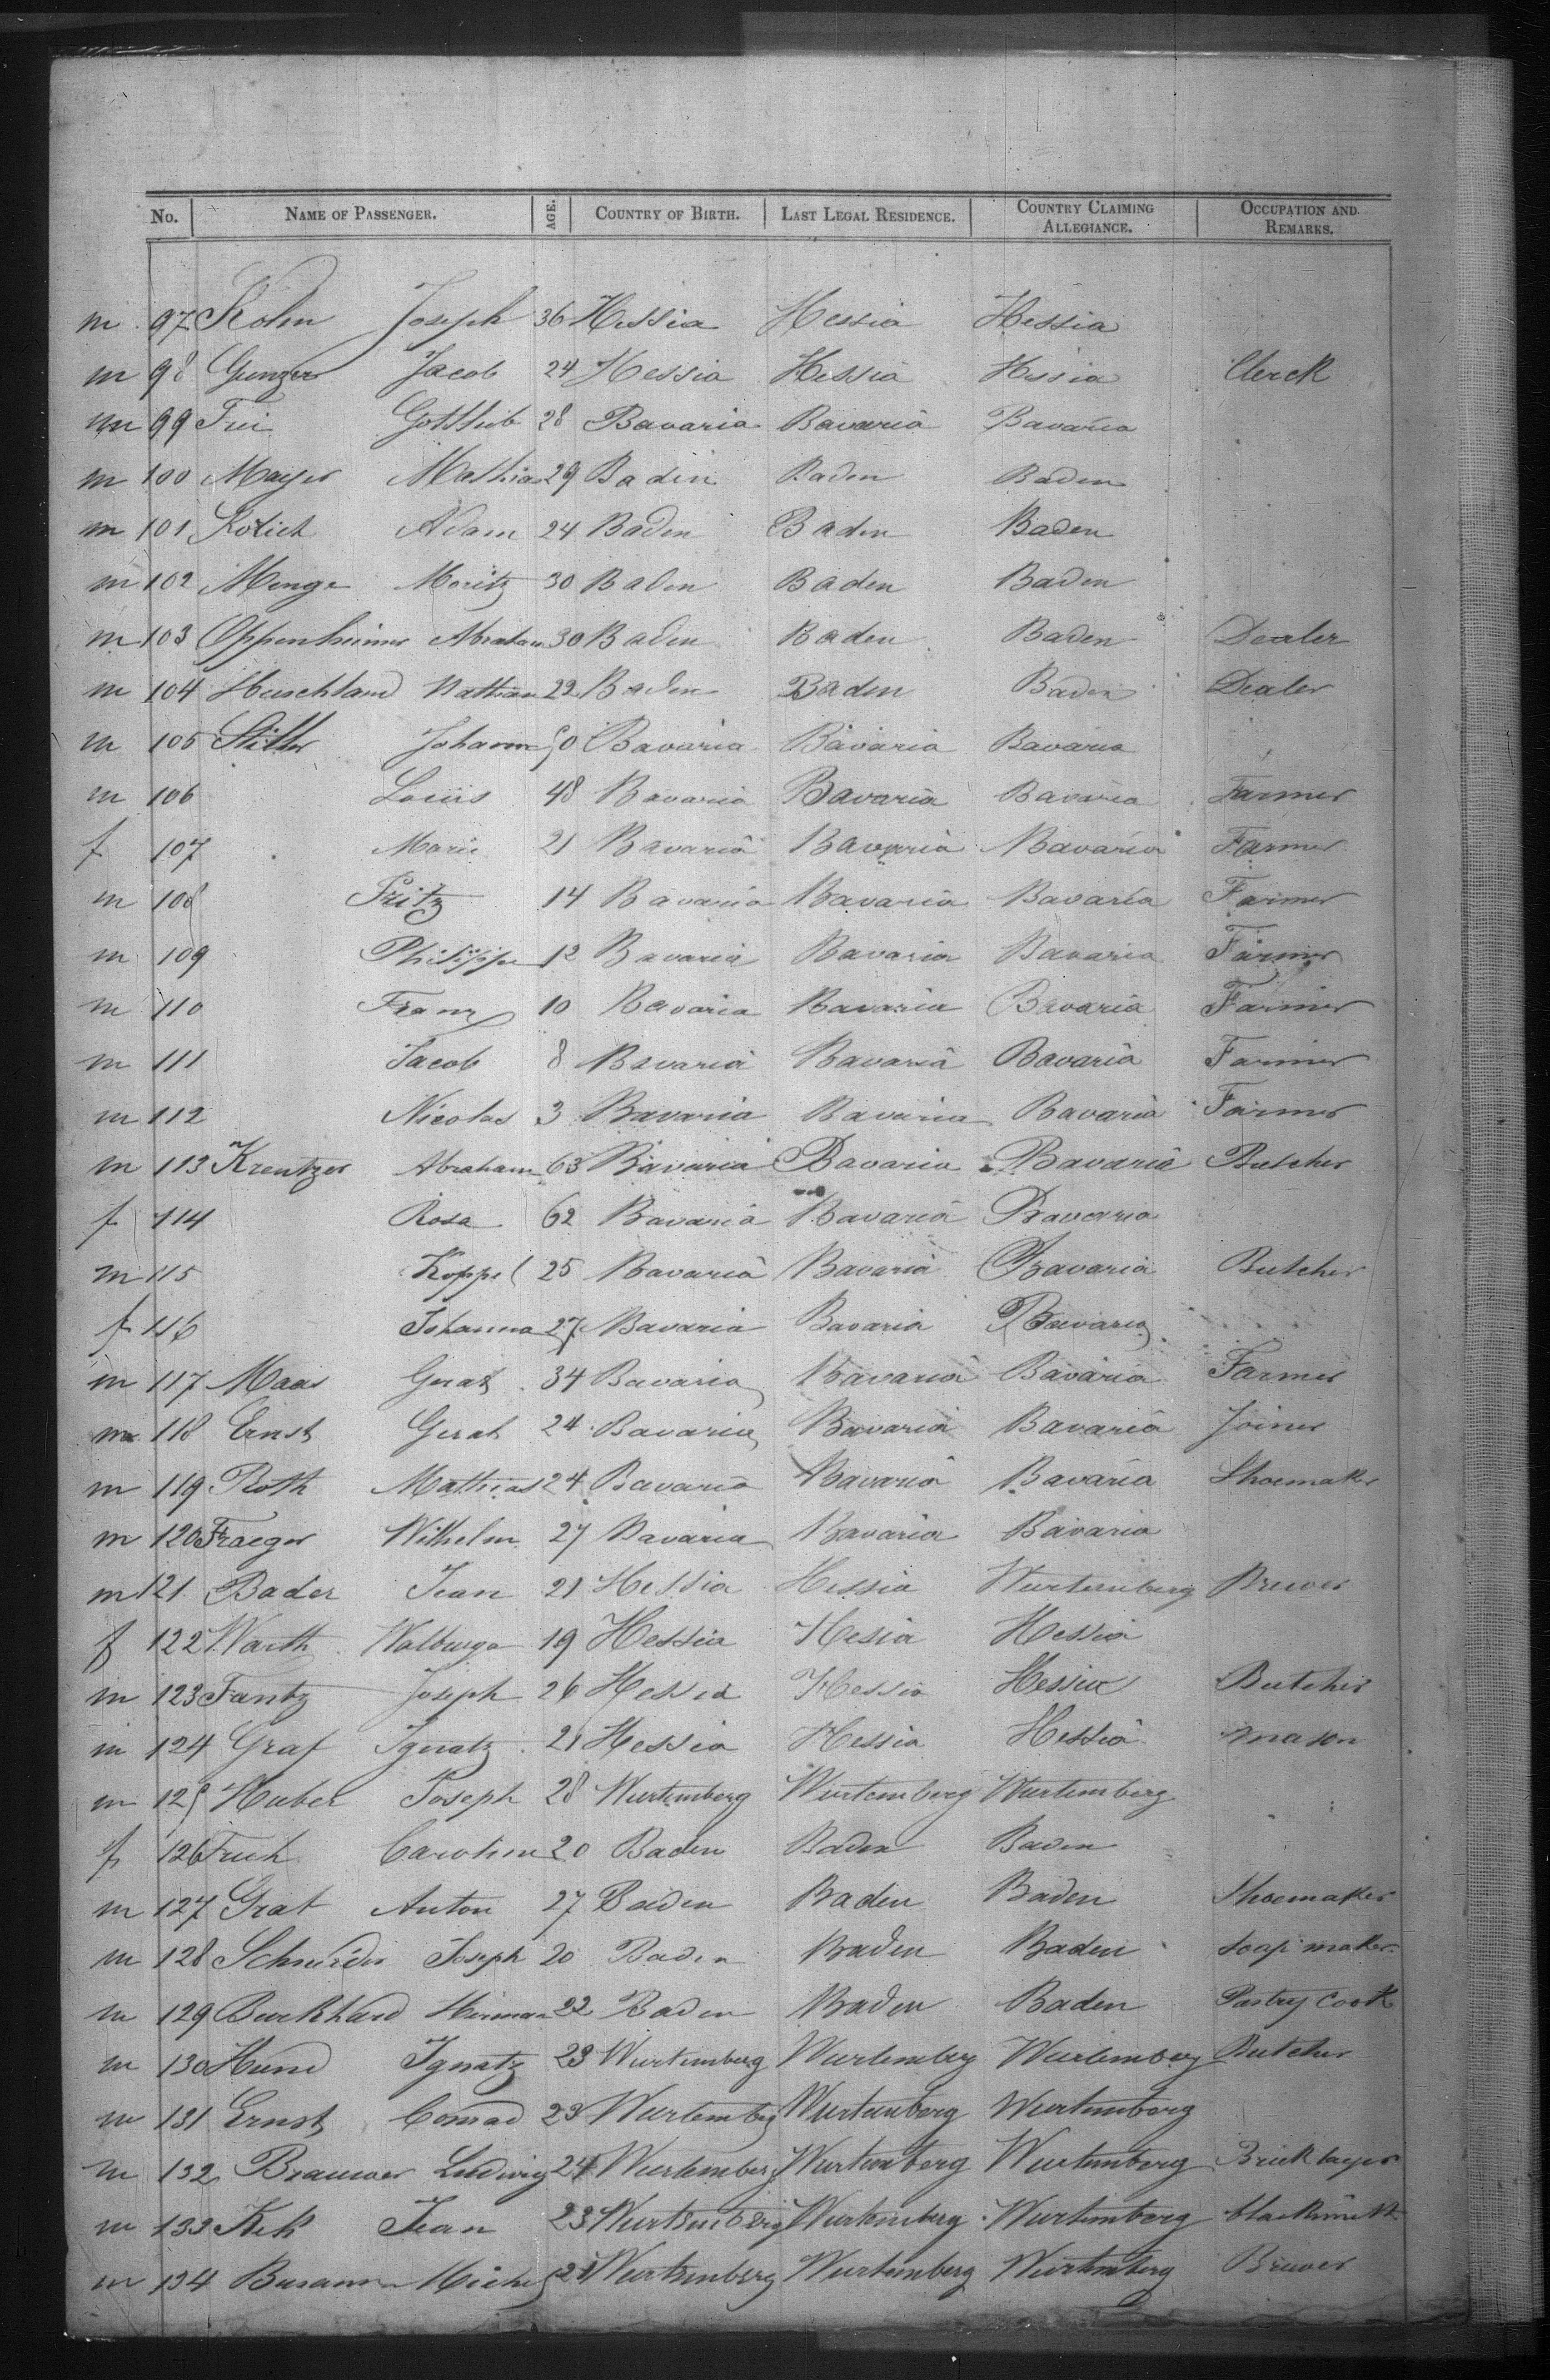 No. NAME OF PASSENGER. AGE. COUNTRY OF BIRTH. LAST LEGAL RESIDENCE. COUNTRY CLAIMING ALLEGIANCE. OCCUPATION AND REMARKS.
m 97 Kohn Joseph 36 Hessia Hessia Hessia
m 98 Gunzer Jacob 24 Hessia Hessia Hessia Clerck
m 99 Gottlieb 28 Bavaria Bavaria Bavaria
m 100 Mayer Mathias 29 Baden Baden Baden
m 101 Adam 24 Baden Baden Baden
m 102 Menge Moritz 30 Baden Baden Baden
m 103 Oppenheimer Abraham 30 Baden Baden Baden Dealer
m 104 Nathan 22 Baden Baden Baden Dealer
m 105 Johann 50 Bavaria Bavaria Bavaria
m 106 Louis 48 Bavaria Bavaria Bavaria Farmer
f 107 Marie 21 Bavaria Bavaria Bavaria Farmer
m 108 Fritz 14 Bavaria Bavaria Bavaria Farmer
m 109 Philippe 12 Bavaria Bavaria Bavaria Farmer
m 110 Franz 10 Bavaria Bavaria Bavaria Farmer
m 111 Jacob 8 Bavaria Bavaria Bavaria Farmer
m 112 Nicolas 3 Bavaria Bavaria Bavaria Farmer
m 113 Krentzer Abraham 63 Bavaria Bavaria Bavaria Butcher
f 114 Rosa 62 Bavaria Bavaria Bavaria
m 115 Koppel 25 Bavaria Bavaria Bavaria Butcher
f 116 Johanna 27 Bavaria Bavaria Bavaria
m 117 Maas 34 Bavaria Bavaria Bavaria Farmer
m 118 Ernst 24 Bavaria Bavaria Bavaria Joiner
m 119 Roth Mathias 24 Bavaria Bavaria Bavaria Shoemaker
m 120 Fraeger Wilhelm 27 Bavaria Bavaria Bavaria
m 121 Bader Jean 21 Hessia Hessia Wurtemberg Brewer
f 122 Warth Walburga 19 Hessia Hesia Hessia
m 123 Fantz Joseph 26 Hessia Hessia Hessia Butcher
m 124 Graf Ignatz 21 Hessia Hessia Hessia mason
m 125 Huber Joseph 28 Wurtemberg Wurtemberg Wurtemberg
f 126 Caroline 20 Baden Baden Baden
m 127 Grat Anton 27 Baden Baden Baden Shoemaker
m 128 Schneider Joseph 20 Baden Baden Baden soap maker
m 129 Burkhard Herman 22 Baden Baden Baden Pastry cook
m 130 Hund Ignatz 23 Wurtemberg Wurtemberg Wurtemberg Butcher
m 131 Ernst Conrad 23 Wurtemberg Wurtemberg Wurtemberg
m 132 Brauwer Ludwig 24 Wurtemberg Wurtemberg Wurtemberg Bricklayer
m 133 Jean 23 Wurtemberg Wurtemberg Wurtemberg blacksmith
m 134 Michel 21 Wurtemberg Wurtemberg Wurtemberg Brewer